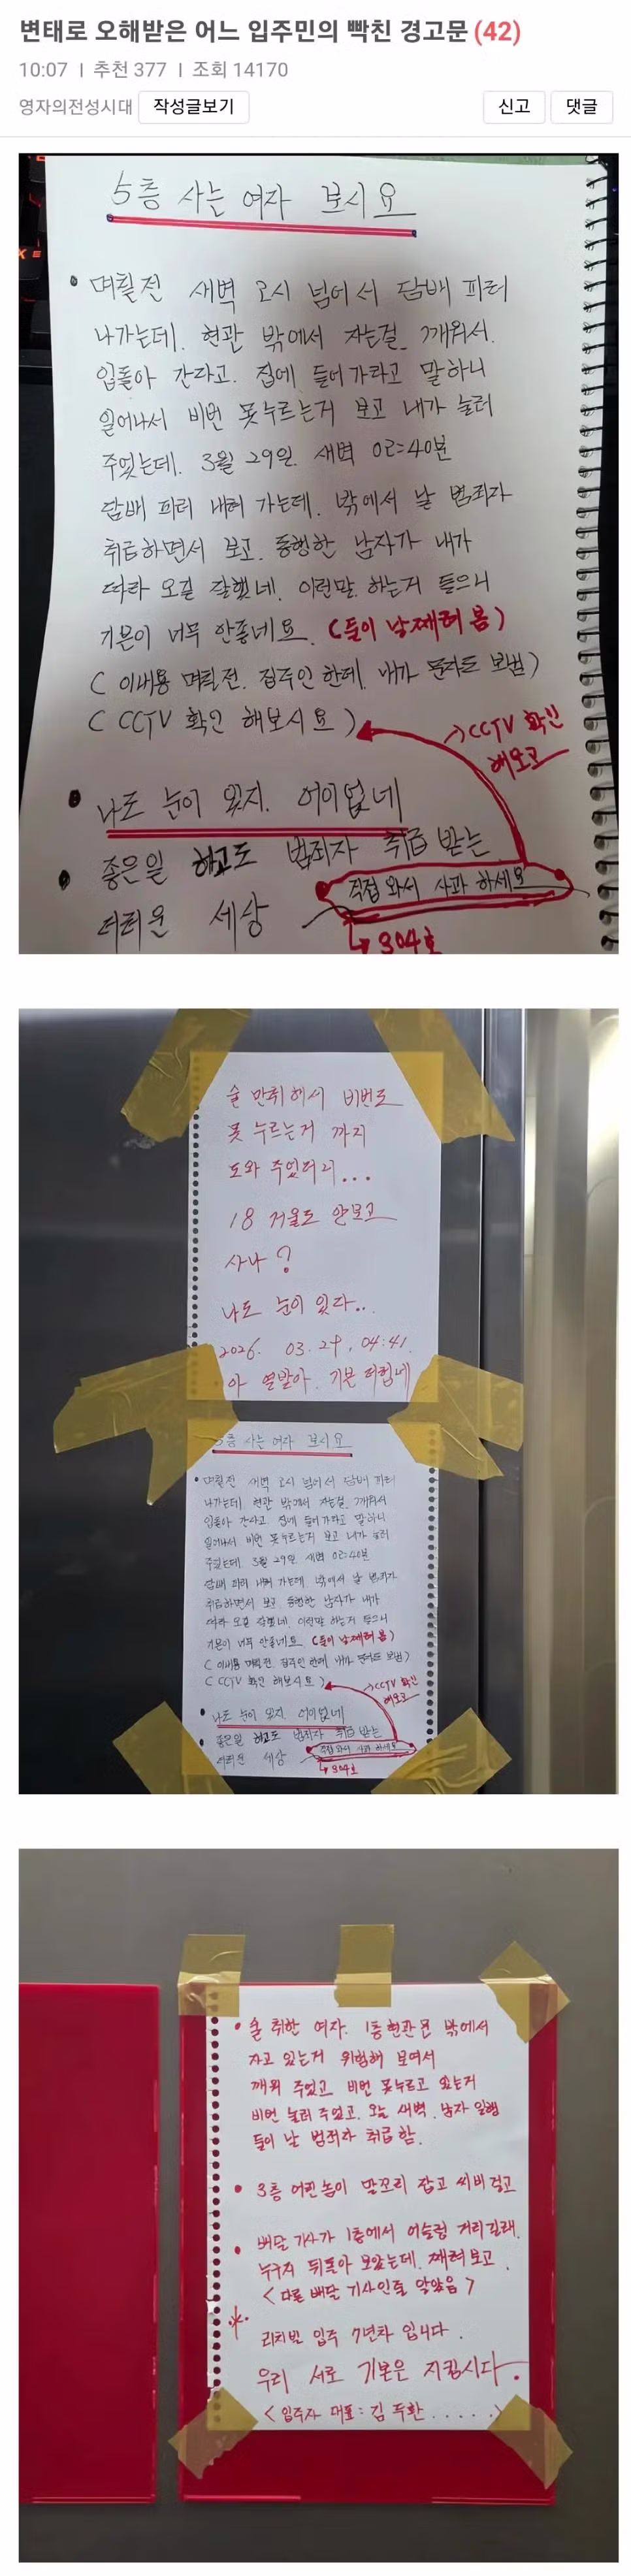 변태로 오해받은 어느 입주민의 빡친 경고문 (42)
10:07 | 추천 377 | 조회 14170
영자의전성시대 작성글보기 신고 댓글
5층 사는 여자 보시요
• 며칠전 새벽 2시 넘어서 담배 피러
나가는데. 현관 밖에서 자는걸 깨워서.
입돌아 간라고. 집에 들어가라고 말하니
일어나서 비번 못누르는거 보고 내가 눌러
주었는데. 3월 29일. 새벽 02:40분
담배 피러 내려 가는데. 밖에서 날 범죄자
취급하면서 보고. 동행한 남자가 내가
따라 오길 잘했네. 이런말. 하는거 들으니
기분이 너무 안좋네요. (둘이 날째려 봄)
( 이내용 며칠전. 집주인 한테. 내가 문자도 보냄)
( CCTV 확인 해보시요 )
→ CCTV 확인
해보고
• 나도 눈이 있지. 어이없네
• 좋은일 하고도 범죄자 취급 받는
더러운 세상
직접 와서 사과 하세요
↳ 304호
술 만취해서 비번도
못 누르는거 까지
도와 주었더니...
18 거울도 안보고
사나?
나도 눈이 있다..
2026. 03. 29, 04:41.
아 열발아. 기분 더럽네
5층 사는 여자 보시요
• 며칠전 새벽 2시 넘어서 담배 피러
나가는데. 현관 밖에서 자는걸. 깨워서
입돌아 간라고. 집에 들어가라고 말하니
일어나서 비번 못누르는거 보고 내가 눌러
주었는데. 3월 29일. 새벽 02:40분
담배 피러 내려 가는데. 밖에서 날 범죄자
취급하면서 보고. 동행한 남자가 내가
따라 오길 잘했네. 이런말 하는거 들으니
기분이 너무 안좋네요. (둘이 날째려 봄)
( 이내용 며칠전. 집주인 한테. 내가 문자도 보냄)
( CCTV 확인 해보시요 )
→ CCTV 확인
해보고
• 나도 눈이 있지. 어이없네
• 좋은일 하고도 범죄자 취급 받는
더러운 세상
직접 와서 사과 하세요
↳ 304호
• 술 취한 여자. 1층현관문 밖에서
자고 있는거 위험해 보여서
깨워 주었고 비번 못누르고 있는거
비번 눌러 주었고. 오늘 새벽. 남자 일행
들이 날 범죄자 취급함.
• 3층 어린놈이 말꼬리 잡고 시비 걸고
• 배달 기사가 1층에서 어슬렁 거리길래.
누구지 뒤돌아 보았는데. 째려보고.
< 다른 배달 기사인줄 알았음 >
* 리치빌 입주 7년차 입니다.
우리 서로 기본은 지킵시다.
< 입주자 대표 : 김두환 ..... >